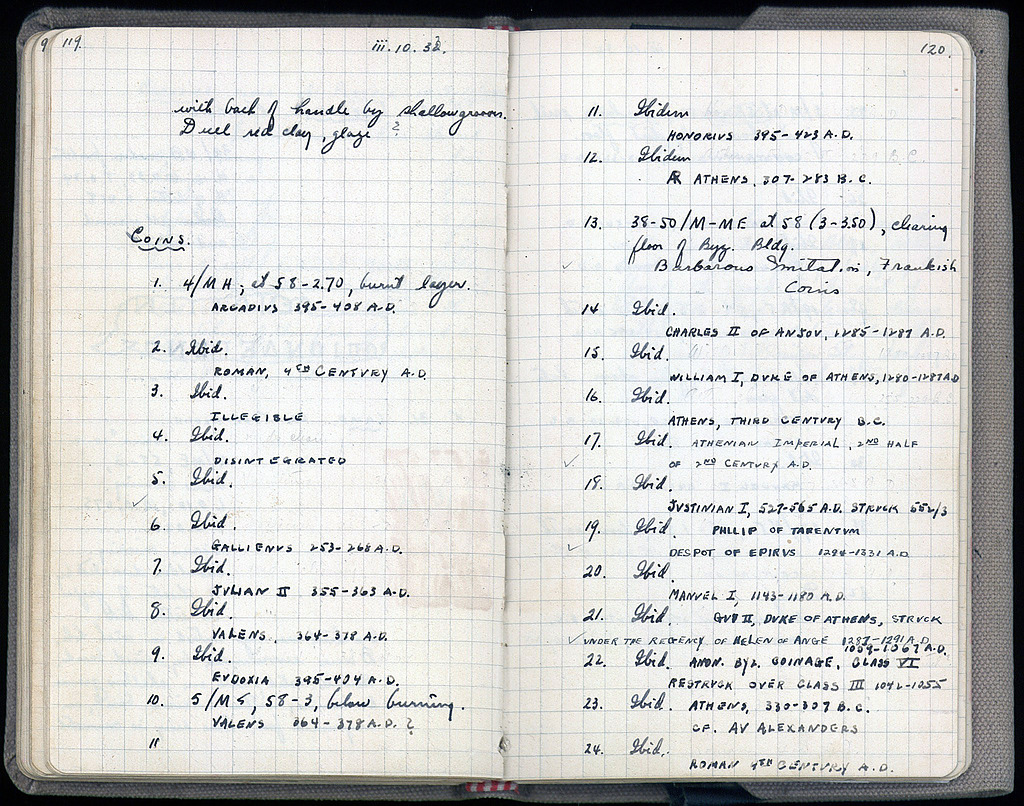 9 119.
iii.10.32.
with back of handle by shallow grooves.
Dull red clay, glaze ?
COINS.
1. 4/MH, at 58-2.70, burnt layer.
ARCADIUS 395-408 A.D.
2. Ibid.
ROMAN, 4TH CENTURY A.D.
3. Ibid.
ILLEGIBLE
4. Ibid.
DISINTEGRATED
5. Ibid.
6. Ibid.
GALLIENUS 253-268 A.D.
7. Ibid.
JULIAN II 355-363 A.D.
8. Ibid.
VALENS 364-378 A.D.
9. Ibid.
EUDOXIA 395-404 A.D.
10. 5/MS, 58-3, below burning.
VALENS 364-378 A.D. ?
11
120
11. Ibidem
HONORIUS 395-423 A.D.
12. Ibidem
ATHENS, 307-283 B.C.
13. 38-50/M-ME at 58 (3-3.50), clearing
floor of Byz. Bldg.
Barbarous Imitation, Frankish
Coins
14 Ibid.
CHARLES II OF ANJOU, 1285-1287 A.D.
15. Ibid.
WILLIAM I, DUKE OF ATHENS, 1280-1287 AD
16. Ibid.
ATHENS, THIRD CENTURY B.C.
17. Ibid. ATHENIAN IMPERIAL, 2ND HALF
OF 2ND CENTURY A.D.
18. Ibid.
JUSTINIAN I, 527-565 A.D. STRUCK 552/3
19. Ibid. PHILIP OF TARENTUM
DESPOT OF EPIRUS 1294-1331 A.D.
20. Ibid.
MANUEL I, 1143-1180 A.D.
21. Ibid. GUY II, DUKE OF ATHENS, STRUCK
UNDER THE REGENCY OF HELEN OF ANGE 1287-1291 A.D.
1059-1067 A.D.
22. Ibid. ANON. BYZ. COINAGE, CLASS VI
RESTRUCK OVER CLASS III 1042-1055
23. Ibid. ATHENS, 330-307 B.C.
CF. AV ALEXANDERS
24. Ibid.
ROMAN 4TH CENTURY A.D.